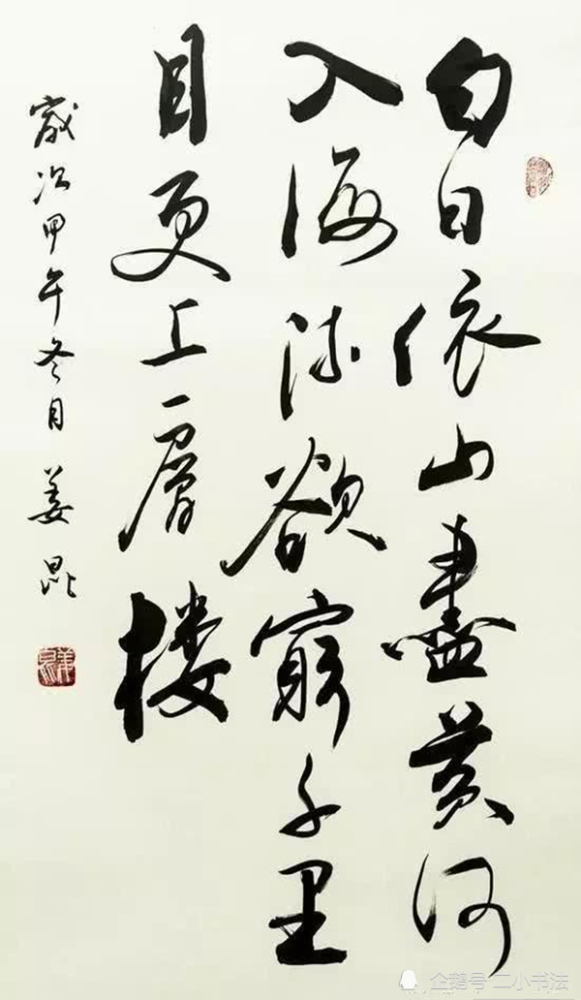 白日依山盡黄河
入海流欲窮千里
目更上一層楼
歲次甲午冬月姜昆
企鹅号 二小书法